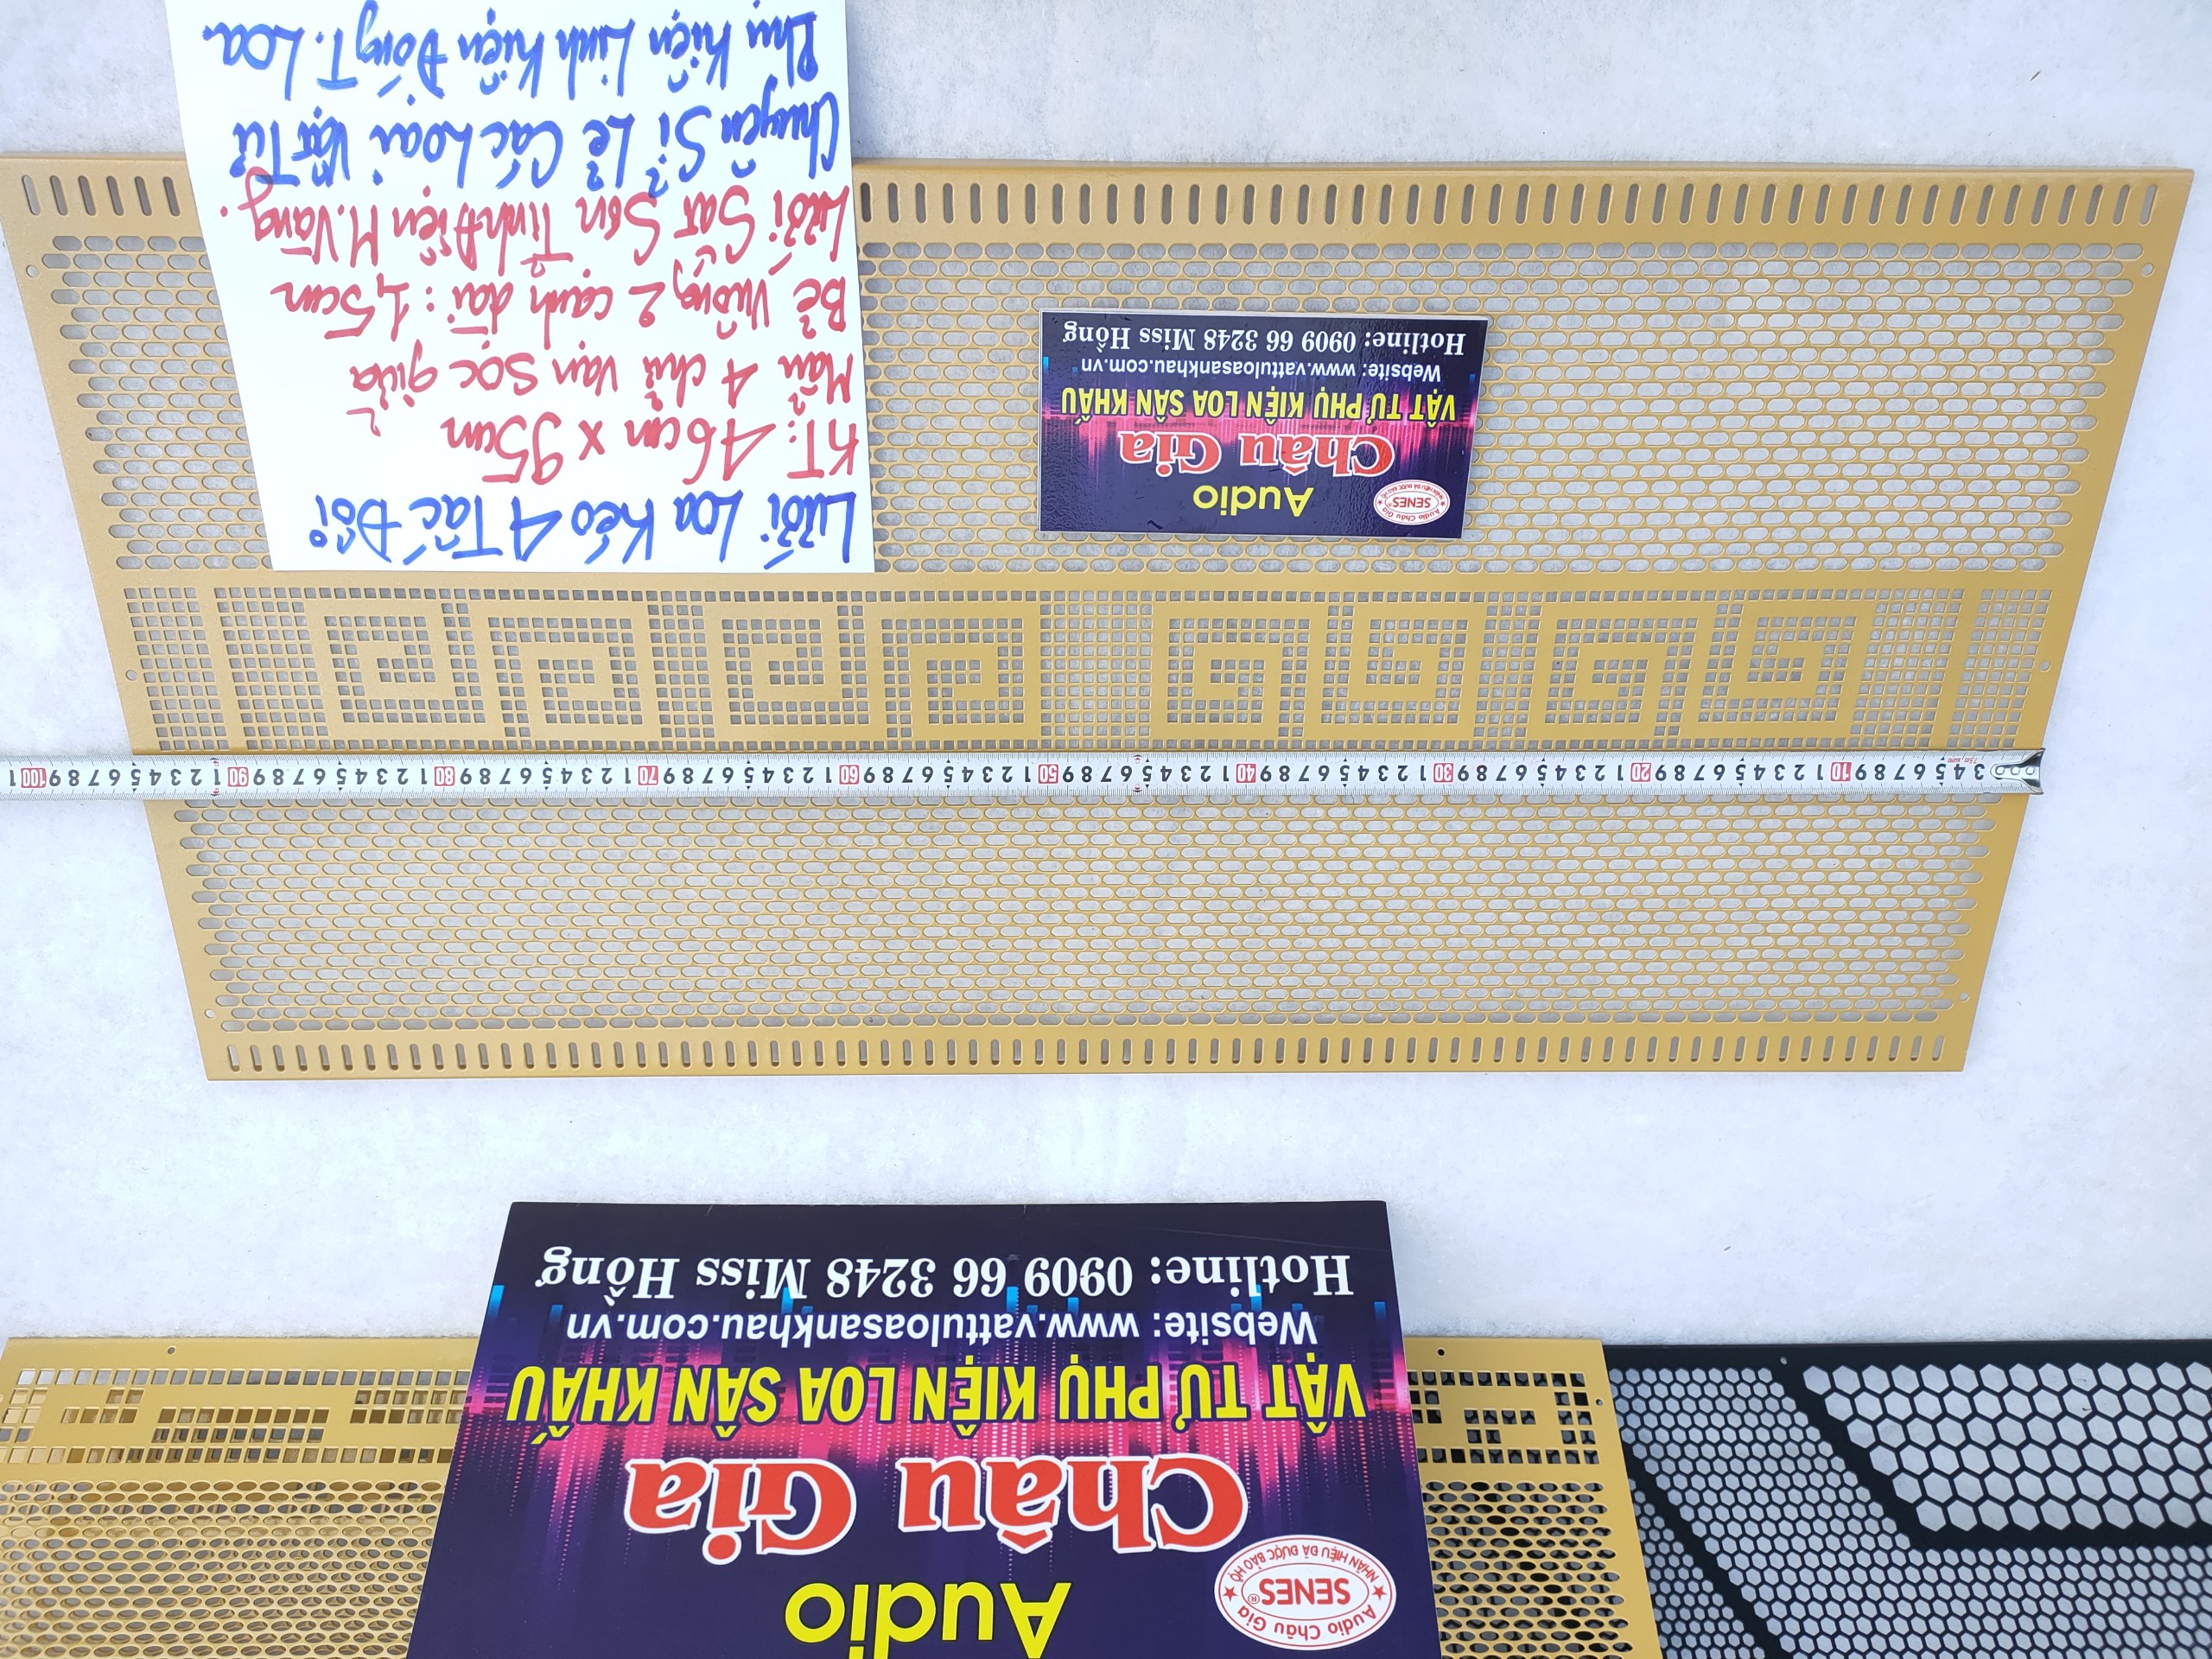 Lưới Loa Kéo 4 Tấc Đôi
KT: 46cm x 95cm
Mẫu 4 chữ vạn sọc giữa
Bẻ vuông 2 cạnh dài: 1,5cm
Lưới Sắt Sơn Tĩnh Điện M.Vàng.
Chuyên Sỉ Lẻ Các Loại Vật Tư
Phụ Kiện Linh Kiện Đóng T. Loa.
Audio Châu Gia
SENES
NHÃN HIỆU ĐÃ ĐƯỢC BẢO HỘ
Audio
Châu Gia
VẬT TƯ PHỤ KIỆN LOA SÂN KHẤU
Website: www.vattuloasankhau.com.vn
Hotline: 0909 66 3248 Miss Hồng
3 4 5 6 7 8 9 10 1 2 3 4 5 6 7 8 9 20 1 2 3 4 5 6 7 8 9 30 1 2 3 4 5 6 7 8 9 40 1 2 3 4 5 6 7 8 9 50 1 2 3 4 5 6 7 8 9 60 1 2 3 4 5 6 7 8 9 70 1 2 3 4 5 6 7 8 9 80 1 2 3 4 5 6 7 8 9 90 1 2 3 4 5 6 7 8 9 100 1
Audio Châu Gia
SENES®
NHÃN HIỆU ĐÃ ĐƯỢC BẢO HỘ
Audio
Châu Gia
VẬT TƯ PHỤ KIỆN LOA SÂN KHẤU
Website: www.vattuloasankhau.com.vn
Hotline: 0909 66 3248 Miss Hồng